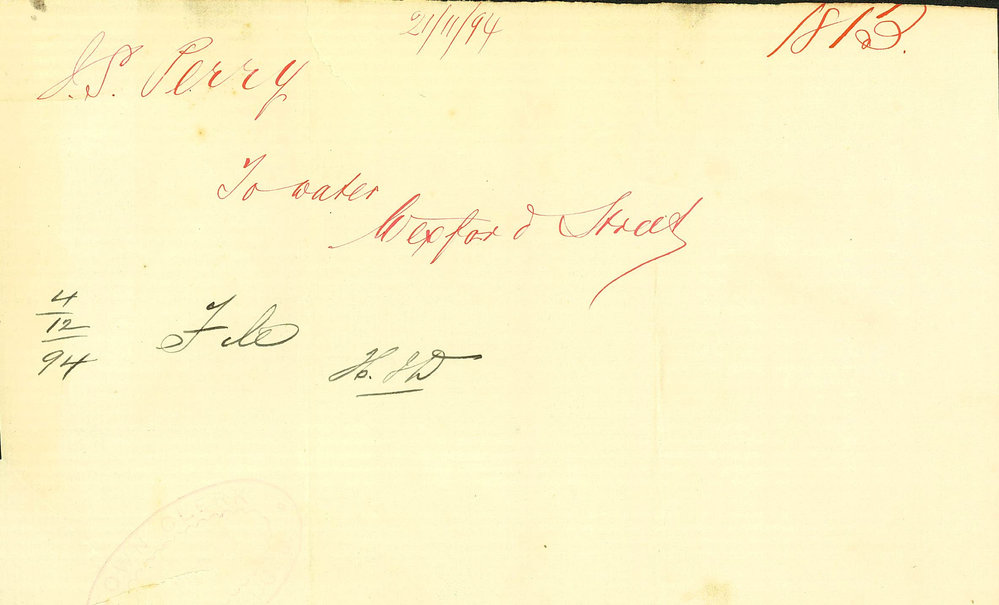 21/11/94
J.S. Perry
To water
Wexford Street
4
12
94
File
H. JD